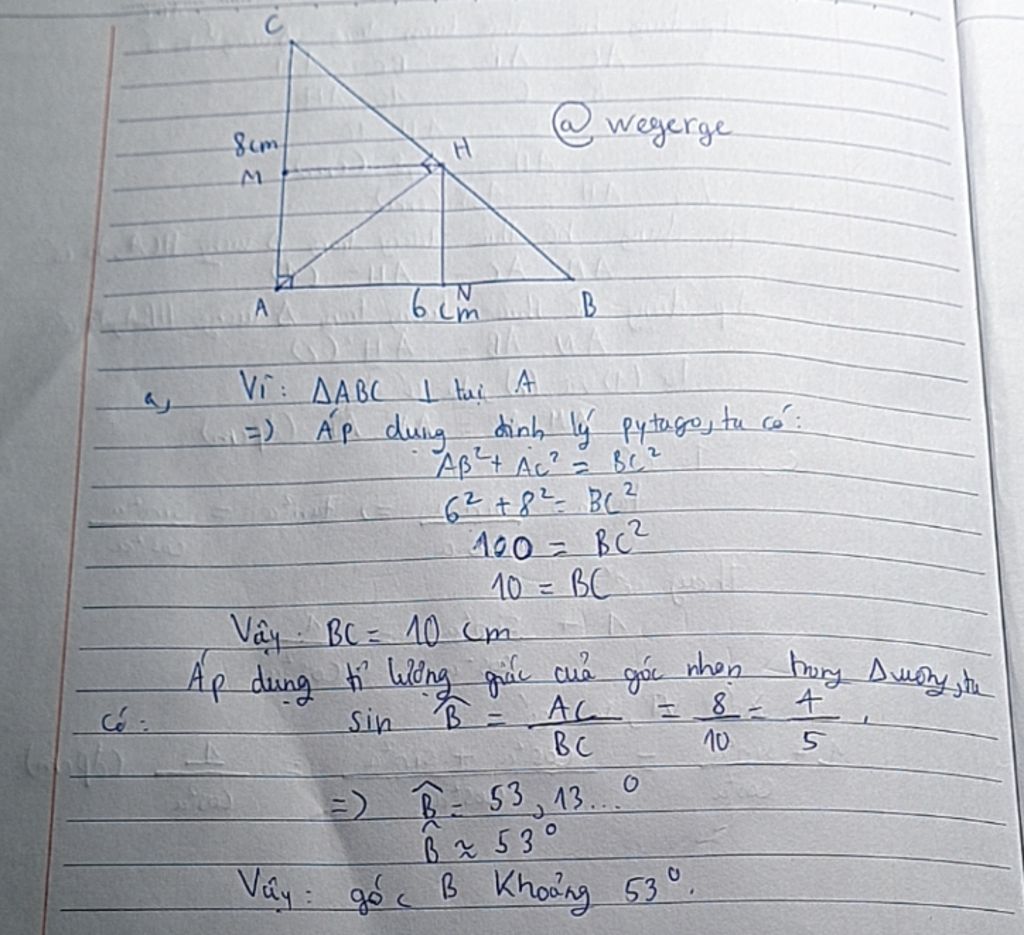 C
@ wegerge
8cm
H
M
A
6 cm
N
B
a, Vì: ΔABC ⊥ tại A
=) Áp dụng định lý pytago, ta có:
AB² + AC² = BC²
6² + 8² = BC²
100 = BC²
10 = BC
Vậy: BC = 10 cm
Áp dụng tỉ lượng giác của góc nhọn trong Δ vuông, ta
có: sin B̂ = AC/BC = 8/10 = 4/5,
=) B̂ = 53,13...°
B̂ ≈ 53°
Vậy: góc B Khoảng 53°.